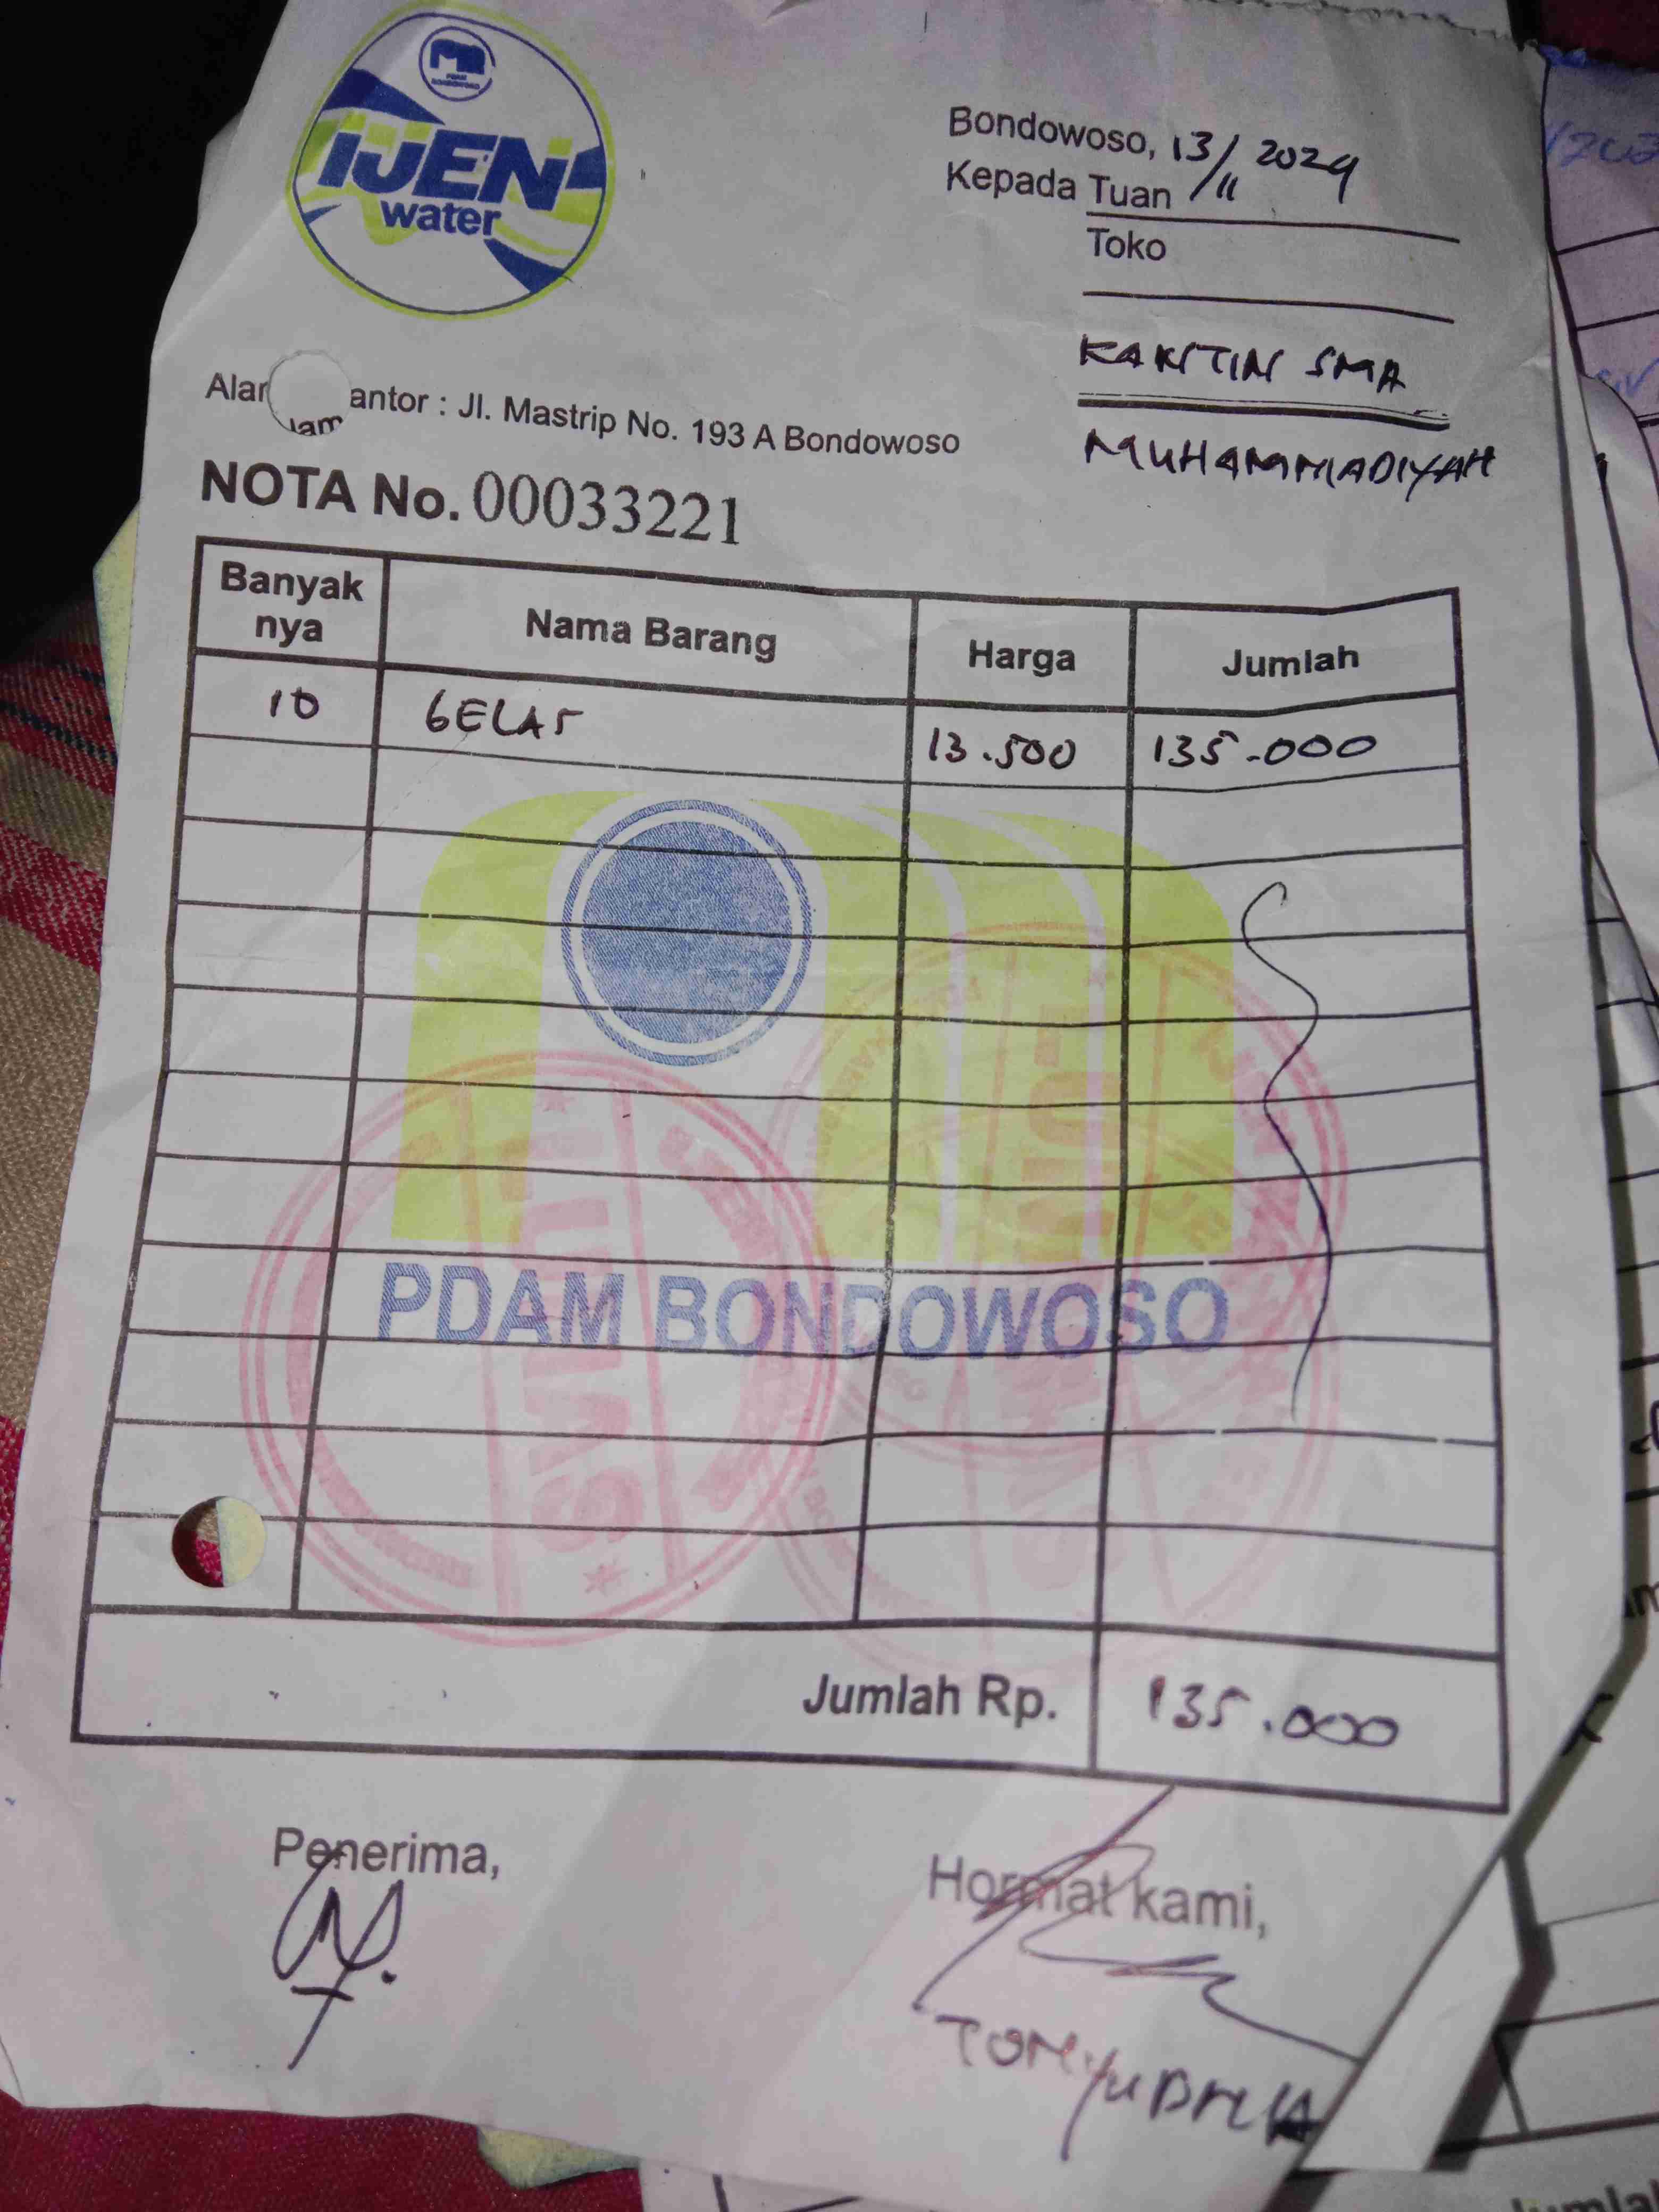 PDAM
BONDOWOSO
IJEN
water
Bondowoso, 13/11 2024
Kepada Tuan
Toko
KANTIN SMA
MUHAMMADIYAH
antor : Jl. Mastrip No. 193 A Bondowoso
NOTA No. 00033221
Banyak nya Nama Barang Harga Jumlah
10 GELAS 13.500 135.000
LUNAS
PDAM BONDOWOSO
Jumlah Rp. 135.000
Penerima,
Hormat kami,